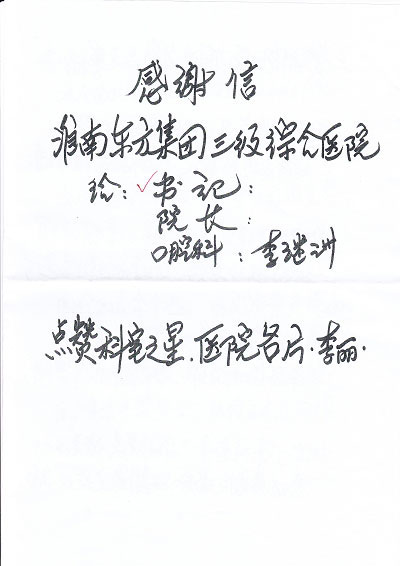 感谢信
淮南东方集团三级综合医院
给：✓书记：
院长：
口腔科：李继洲
点赞科室之星.医院名片.李丽.